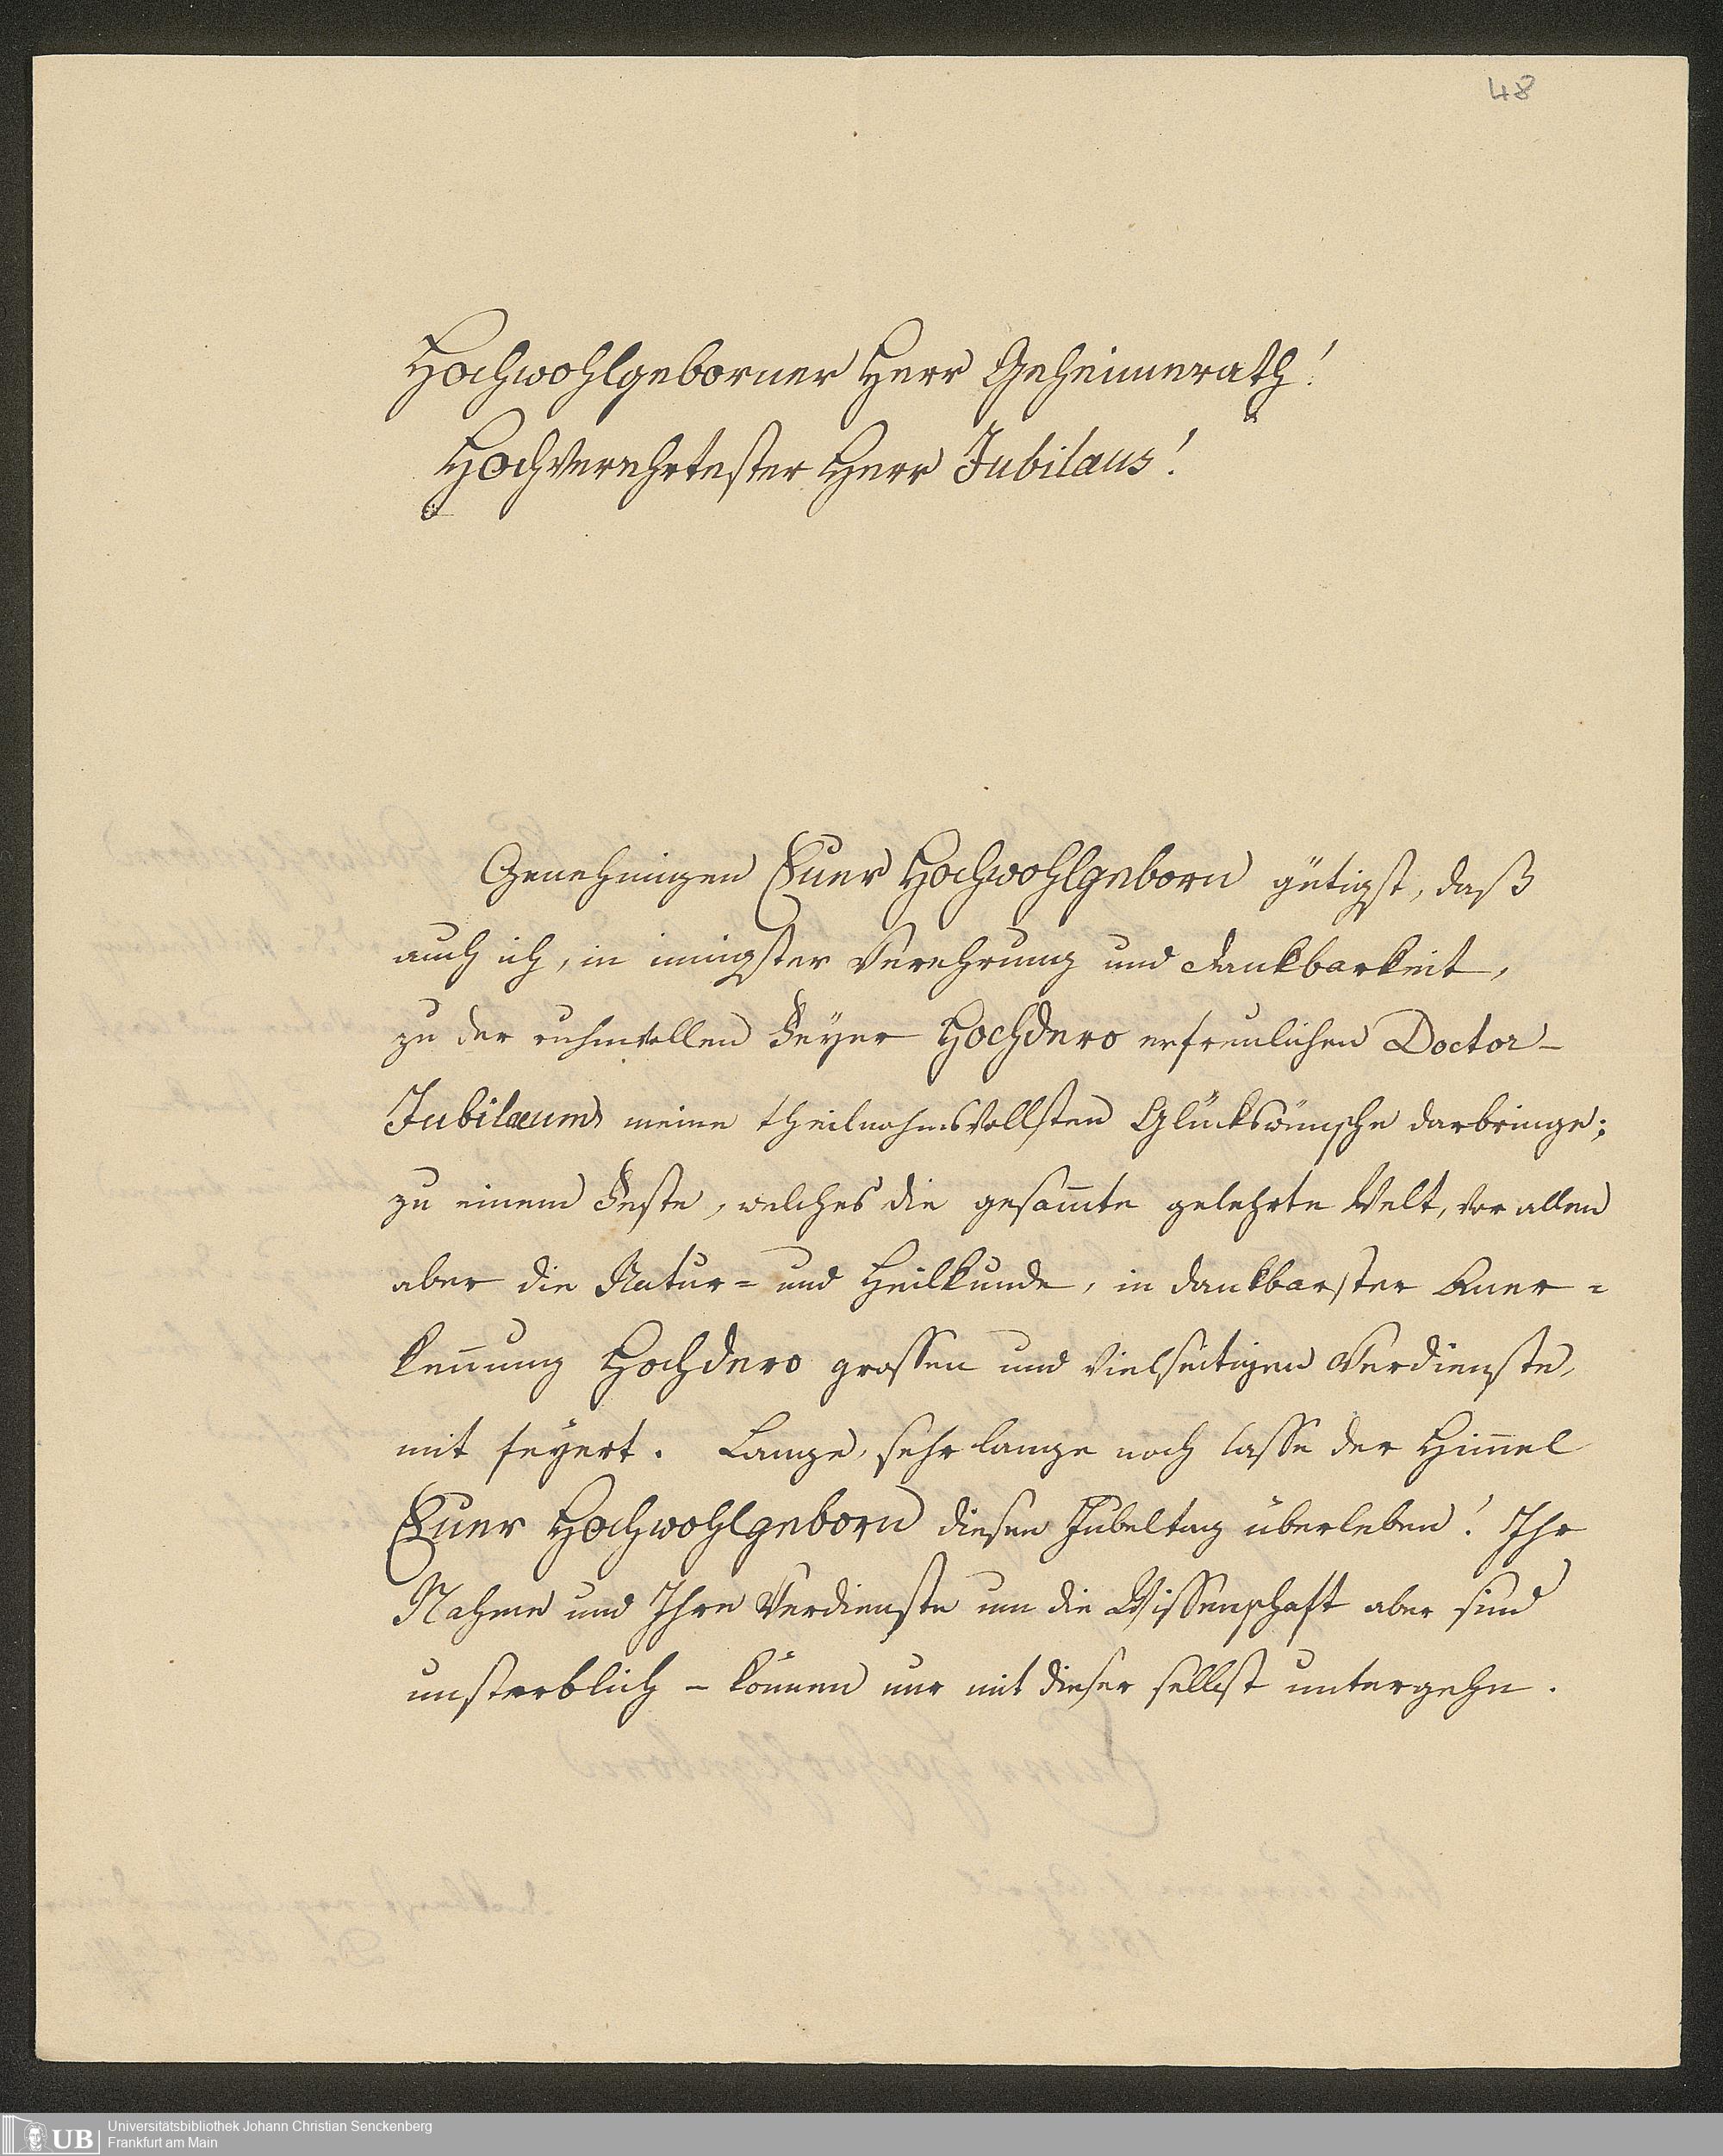 48
Hochwohlgeborner Herr Geheimerath!
Hochverehrtester Herr Jubilaeus!
Genehmigen Euer Hochwohlgeborn gütigst, daß
auch ich, in innigster Verehrung und Dankbarkeit,
zu der ruhmvollen Feyer Hochdero erfreulichen Doctor-
Jubilaeums meine theilnahmsvollsten Glückswünsche darbringe;
zu einem Feste, welches die gesam̄te gelehrte Welt, vor allen
aber die Natur= und Heilkunde, in dankbarster Aner=
ken̄ung Hochdero grossen und vielseitigen Verdienste,
mit feyert. Lange, sehr lange noch lasse der Him̄el
Euer Hochwohlgeborn diesen Jubeltag überleben! Ihr
Nahme und Ihre Verdienste um die Wissenschaft aber sind
unsterblich – können nur mit dieser selbst untergehn.
UB
Universitätsbibliothek Johann Christian Senckenberg
Frankfurt am Main